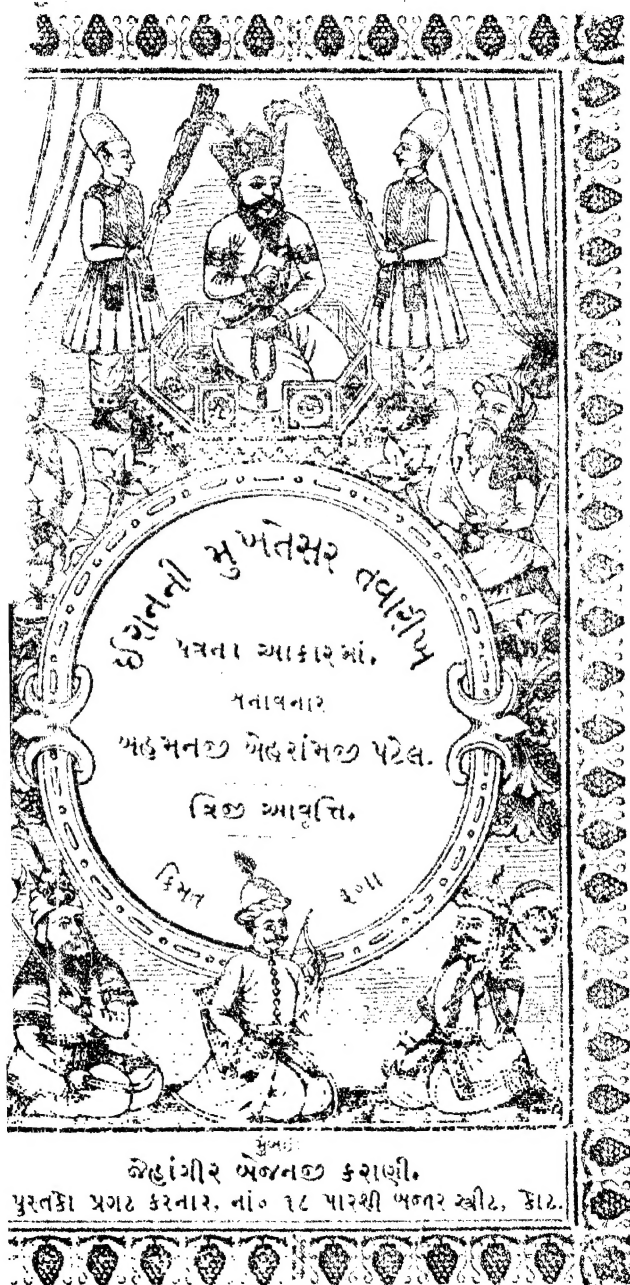 ઈરાનની મુખતેસર તવારીખ
પત્રના આકારમાં.
બનાવનાર
બહમનજી બેહરાંમજી પટેલ.
ત્રિજી આવૃત્તિ.
કિંમત રૂ૦॥
મુંબઈ:
જેહાંગીર બેજનજી કરાણી.
પુસ્તકો પ્રગટ કરનાર, નાં૦ ૧૮ પારશી બજાર સ્ત્રીટ, કોટ.